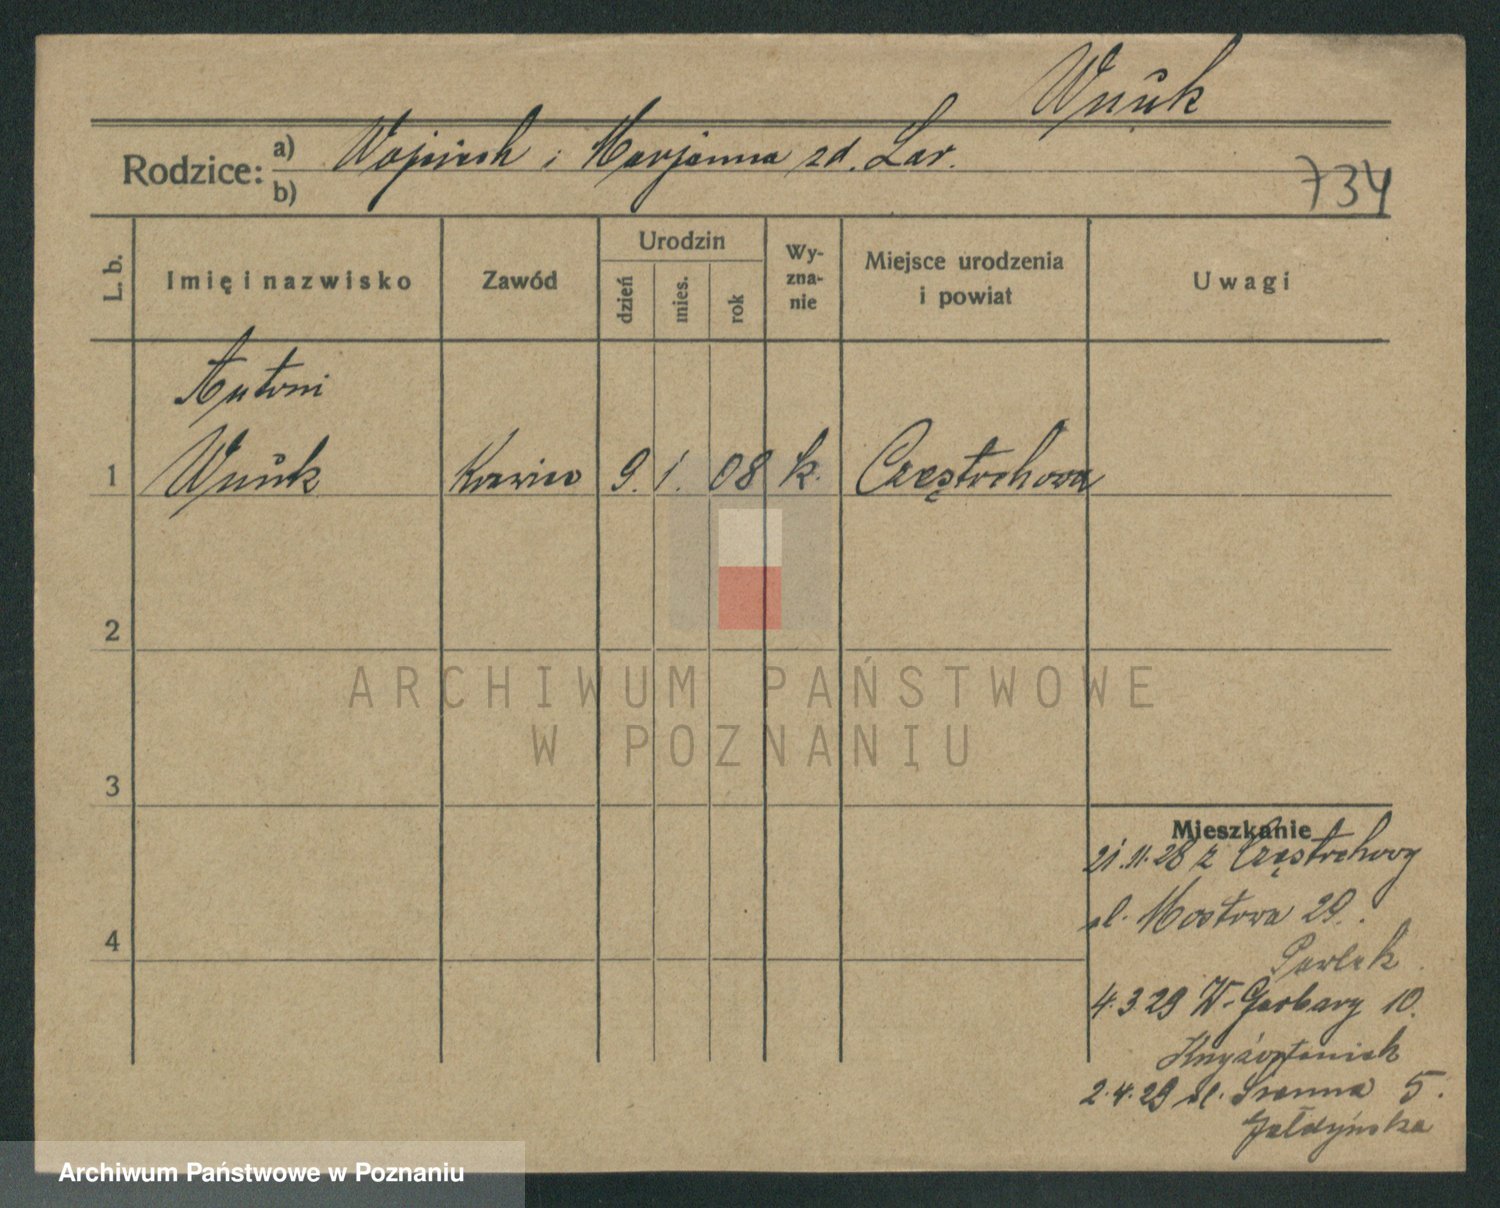 Wnuk
Rodzice: a) Wojciech i Marjanna zd. Lar.
b)
734
L. b.
Imię i nazwisko
Zawód
Urodzin
dzień
mies.
rok
Wy-
zna-
nie
Miejsce urodzenia
i powiat
Uwagi
Antoni
1 Wnuk Krawiec 9. 1. 08 k. Częstochowa
2
ARCHIWUM PAŃSTWOWE
W POZNANIU
3
Mieszkanie
21.11.28 z Częstochowy
ul. Mostowa 29.
4
Pawlak
4.3.29 W. Garbary 10.
Krzyżostaniak
2.4.29 ul. 5.
Archiwum Państwowe w Poznaniu